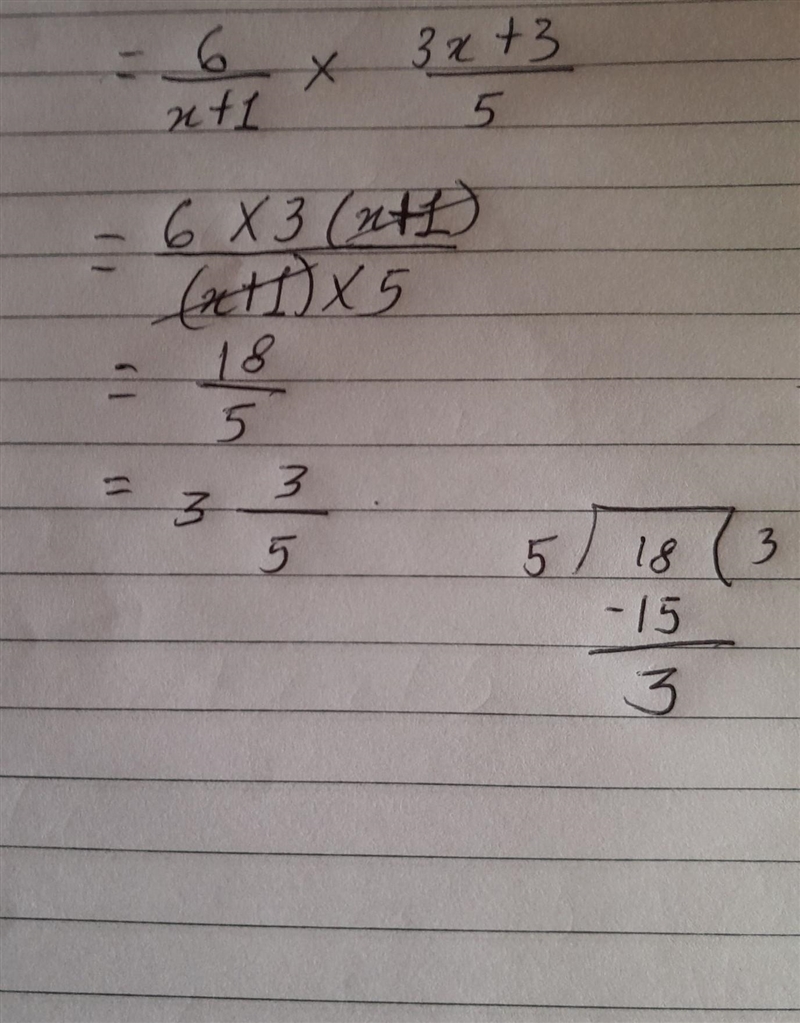 = 6/x+1 × 3x+3/5
= 6 × 3 (x+1)/(x+1) × 5
= 18/5
= 3 3/5
5 ) 18 ( 3
-15
3